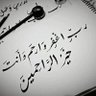 رب اغفر وارحم وأنت
خير الراحمين